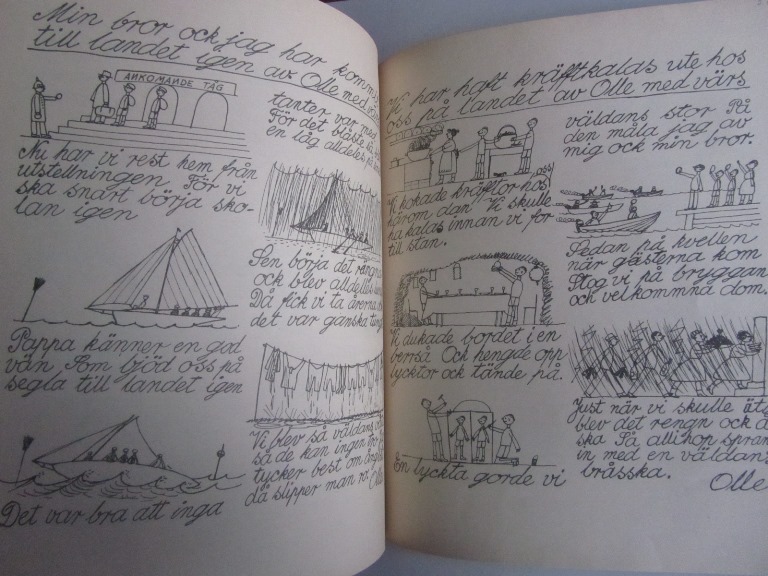 Min bror ock jag har kommit
till landet igen av Olle med
ANKOMANDE TÅG
Nu har vi rest hem från
utstellningen För vi
ska snart börja sko-
lan igen
Pappa känner en god
vän Som bjöd oss på
segla till landet igen
Det var bra att inga
tanter var med
För det blåste
en låg alldeles
Sen börja det rengna
ock blev alldeles
Då fick vi ta årerna
det var ganska
Vi blev så väldans
så de kan ingen tro
tycker best om
då slipper man ro. Olle
Vi har haft kräftkalas ute hos
oss på landet av Olle med värs
Vi kokade kräftor hos oss
härom dan Vi skulle
ha kalas innan vi for
till stan.
Vi dukade bordet i en
berrså Ock hengde opp
lycktor ock tände på.
En lyckta gorde vi
väldans stor På
den måla jag av
mig ock min bror.
Sedan på kvellen
när gästerna kom
Stog vi på bryggan
och velkommna dom.
Just när vi skulle äta
blev det rengn ock å-
ska Så allihop spran
in med en väldans
bråsska.
Olle